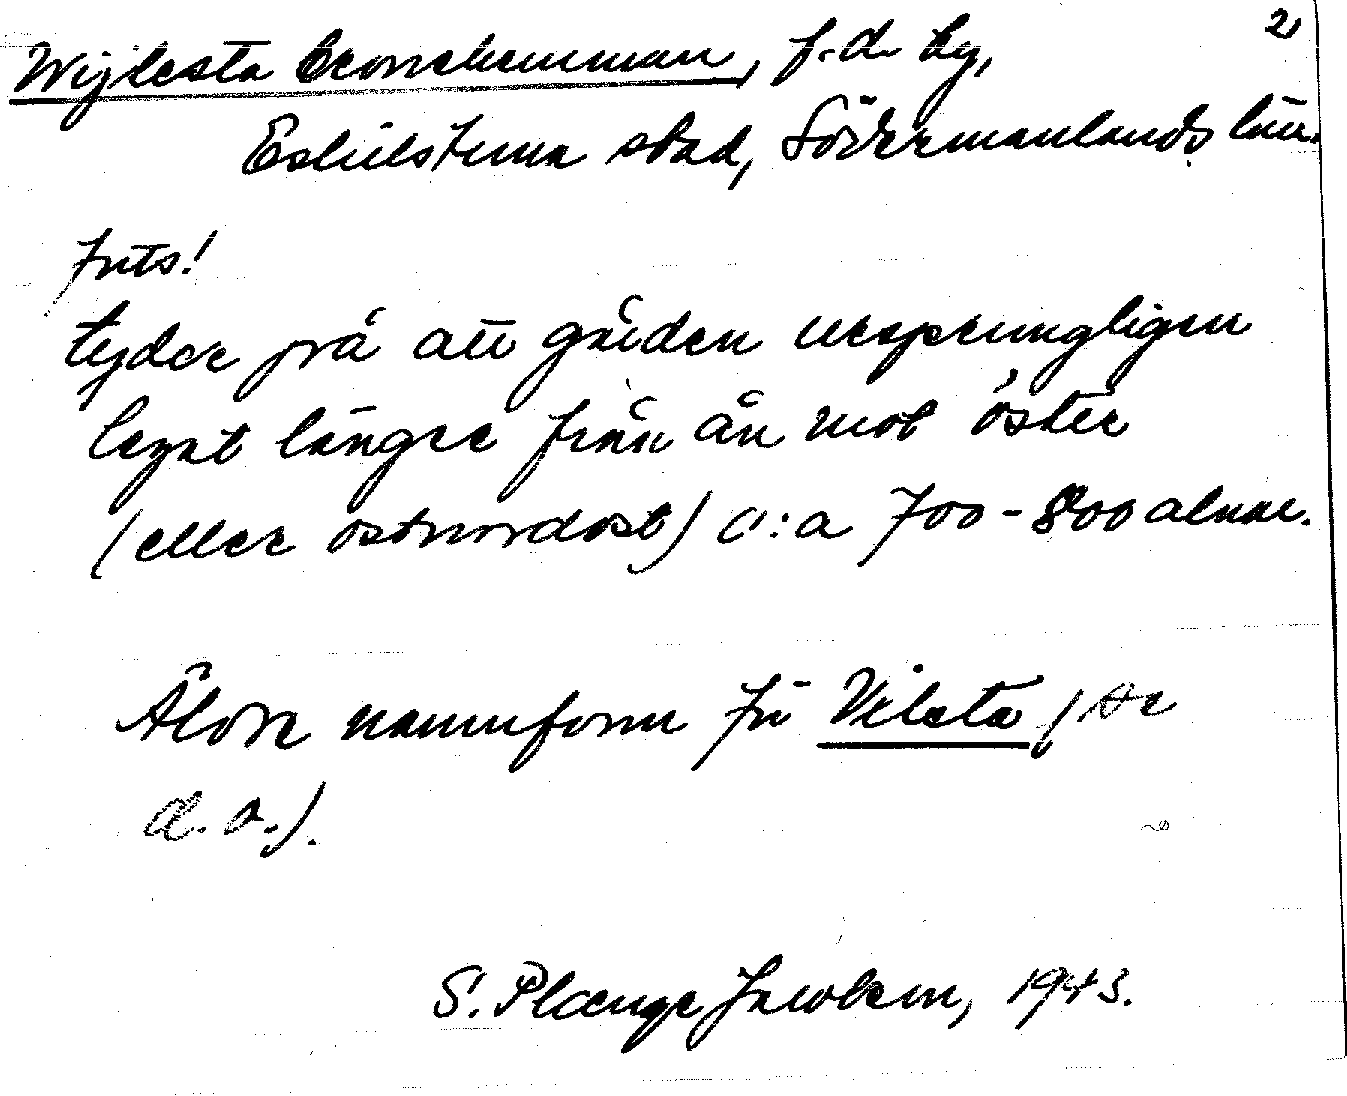 2)
Wijlesta Cronehemman, f.d. by,
Eskilstuna stad, Södermanlands län.
Forts!
tyder på att gården ursprungligen
legat längre från ån mot öster
(eller ostnordost) c:a 700-800 alnar.
Äldre namnform för Vilsta (se
d. o.).
S. Plænge Jacobson, 1943.